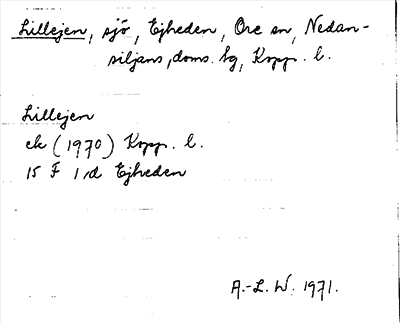 Lillejen, sjö, Ejheden, Ore sn, Nedan-
siljans, doms. hg, Kopp. l.
Lillejen
ek (1970) Kopp. l.
15 F 1 d Ejheden
A.-L. W. 1971.